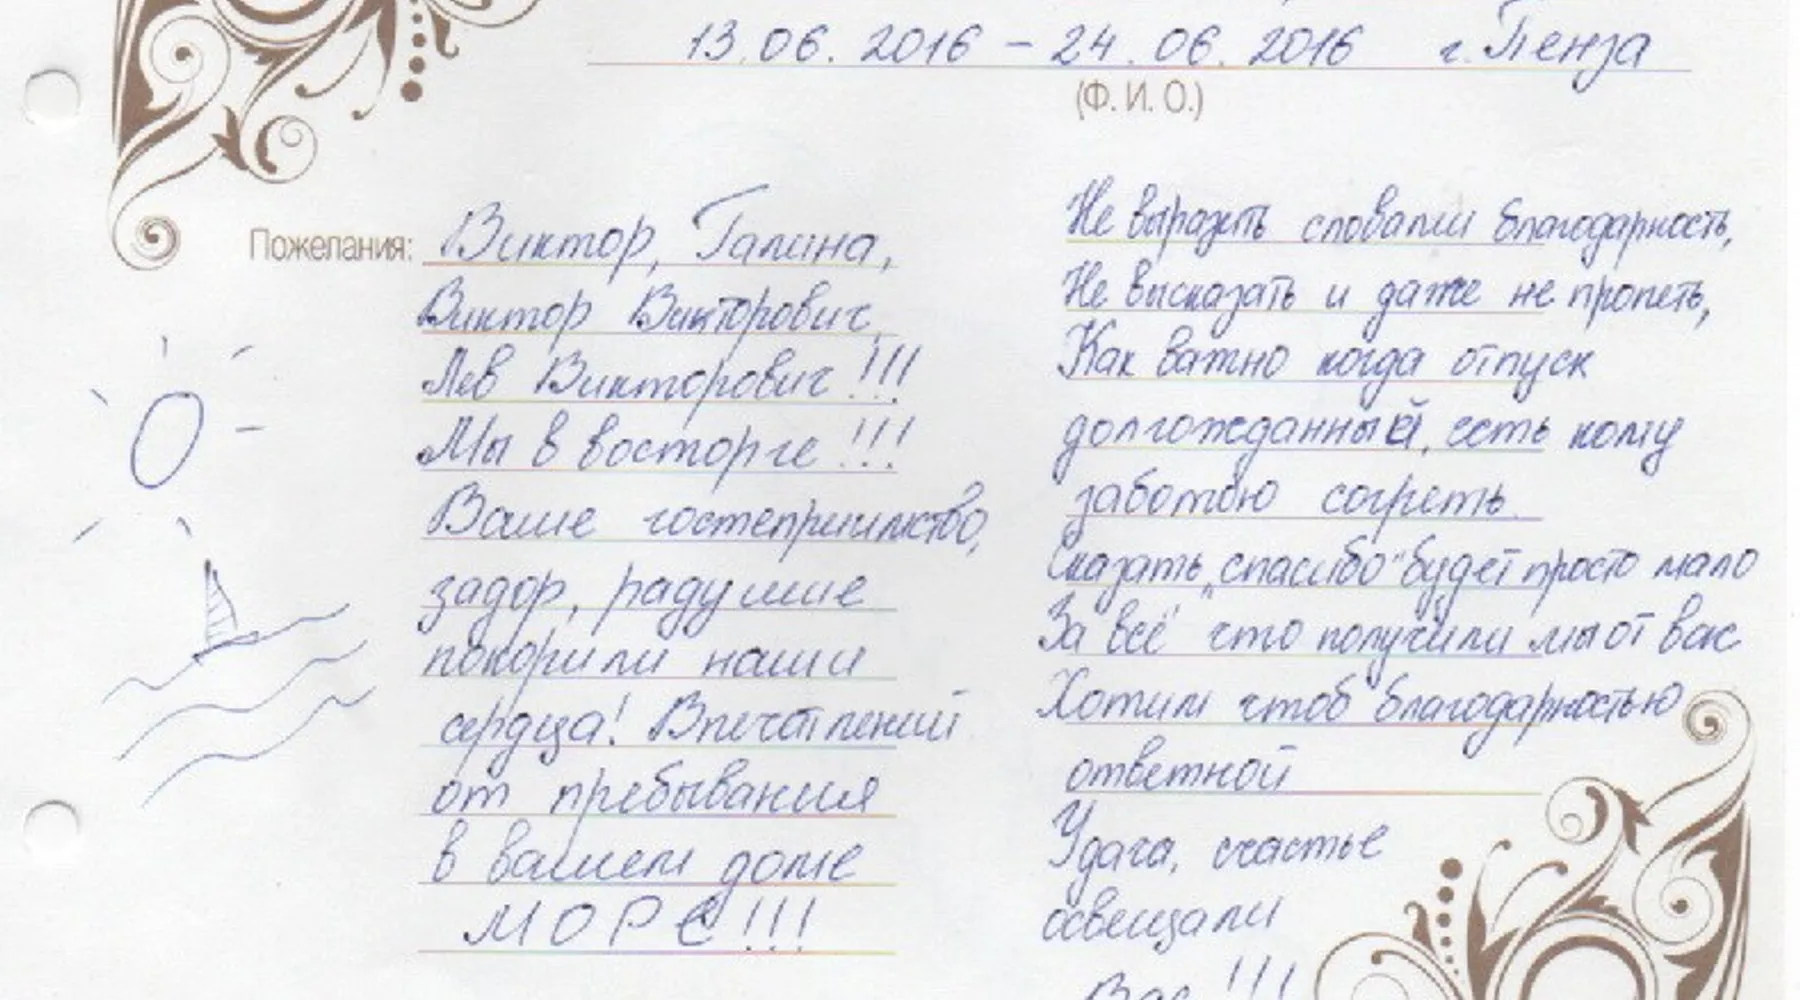 13.06.2016 – 24.06.2016 г. Пенза
(Ф. И. О.)
Пожелания: Виктор, Галина,
Виктор Викторович,
Лев Викторович!!!
Мы в восторге!!!
Ваше гостеприимство,
задор, радушие
покорили наши
сердца! Впечатлений
от пребывания
в вашем доме
МОРЕ!!!
Не выразить словами благодарность,
Не высказать и даже не пропеть,
Как важно когда отпуск
долгожданный, есть кому
заботою согреть.
Сказать „спасибо" будет просто мало
За всё что получили мы от вас
Хотим чтоб благодарностью
ответной
Удача, счастье
освещали
Вас!!!